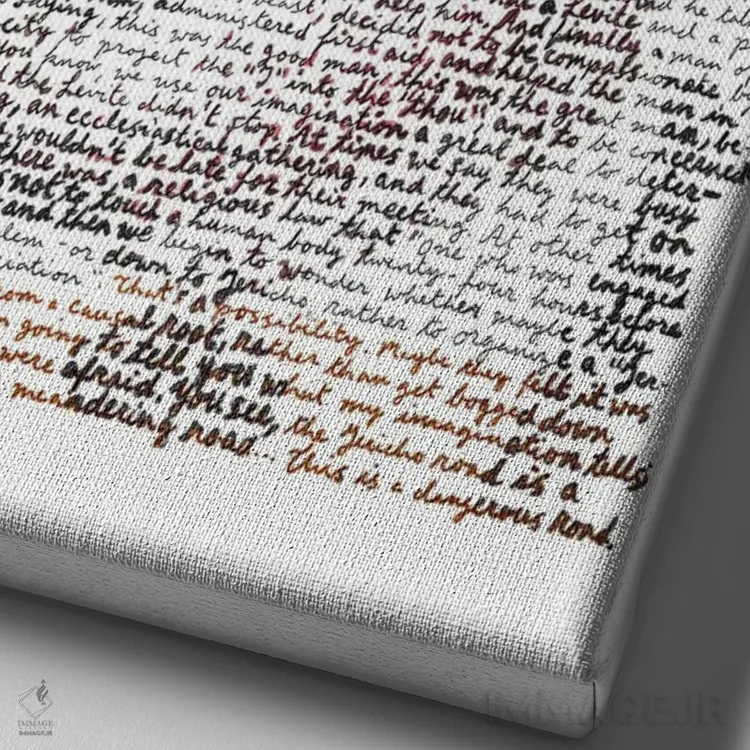 him. And finally a man of
saying him, administered first aid, and helped the man in
beast, decided not to be compassionate by
city to project the "I" into the "thou," and to be concerned
this was the good man, this was the great man, be-
you know, we use our imagination a great deal to deter-
the Levite didn't stop. At times we say they were busy
an ecclesiastical gathering, and they had to get on
wouldn't be late for their meeting. At other times,
there was a religious law that "one who was engaged
not to touch a human body twenty-four hours before
and then we begin to wonder whether maybe they
-or down to Jericho rather to organize a "Jer-
ciation." That's a possibility. Maybe they felt it was
from a causal root, rather than get bogged down
going to tell you what my imagination tells
were afraid. You see, the Jericho road is a
meandering road... This is a dangerous road.
IMMAGE
IMMAGE.IR
IMMAGE.IR